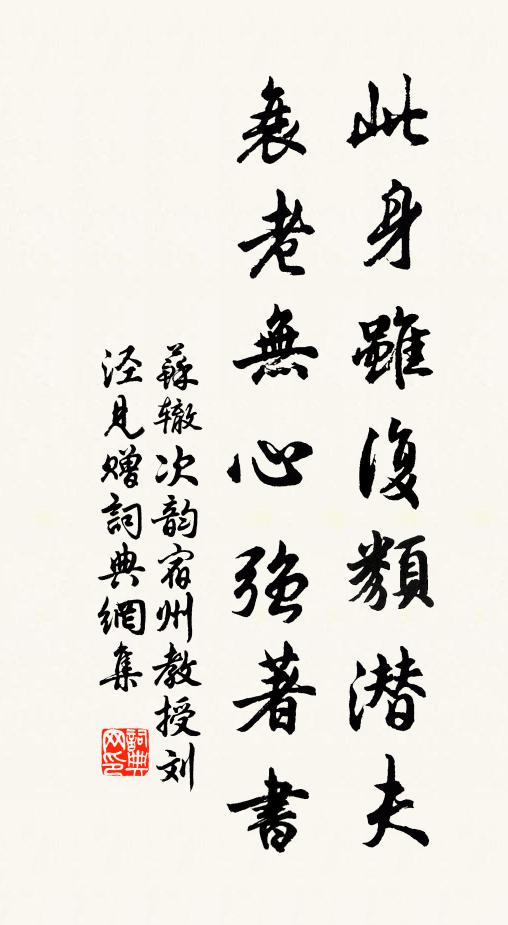 此身雖復類潜夫
衰老無心强著書
蘇辙次韵宿州教授刘
泾見赠詞典網集
詞典网印